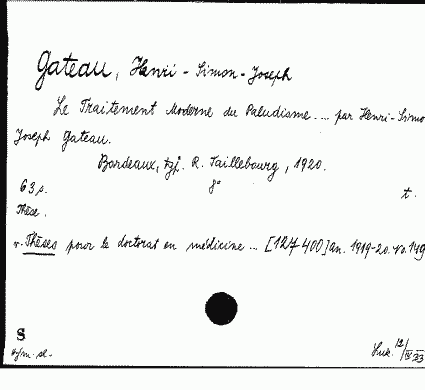 Gateau, Henri - Simon - Joseph
Le Traitement Moderne du Paludisme ... par Henri-Simo
Joseph Gateau.
Bordeaux, typ. R. Taillebourg, 1920.
63 p. 8° t.
Thèse.
v. Thèses pour le doctorat en médicine ... [127400] an. 1919-20. No. 149
S
12/IV 33